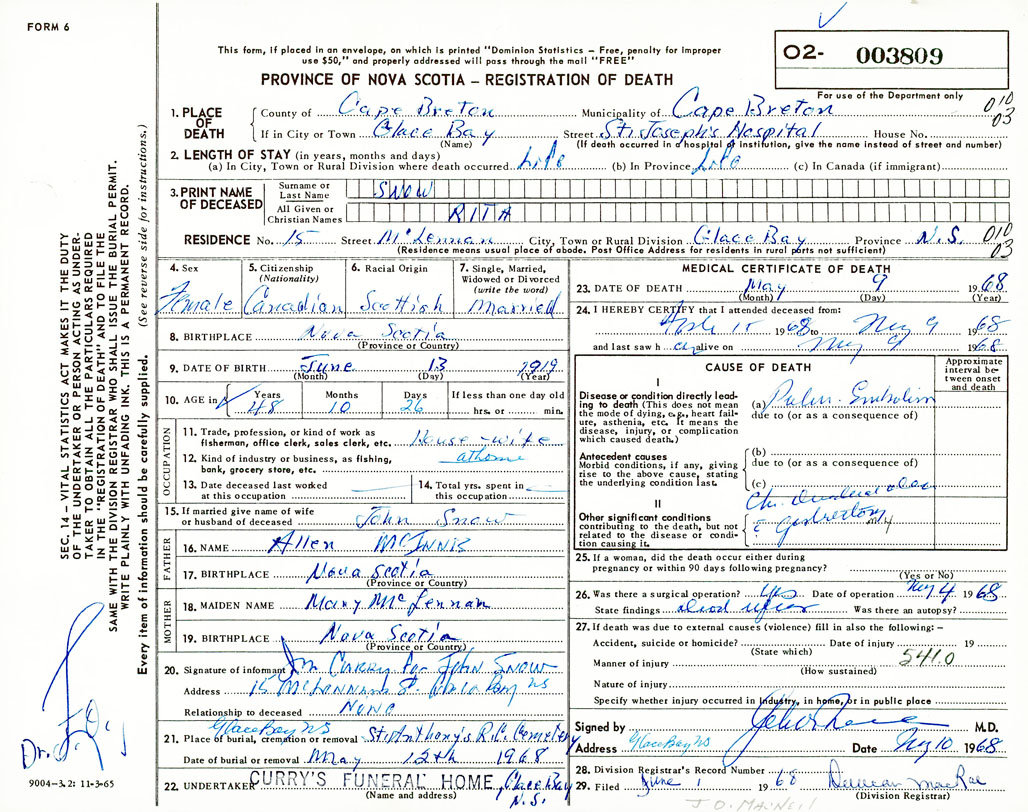 FORM 6
This form, if placed in an envelope, on which is printed "Dominion Statistics – Free, penalty for improper
use $50," and properly addressed will pass through the mail "FREE"
PROVINCE OF NOVA SCOTIA – REGISTRATION OF DEATH
O2- 003809
For use of the Department only
010
03
1. PLACE OF DEATH
County of Cape Breton Municipality of Cape Breton
If in City or Town Glace Bay Street St. Joseph's Hospital House No.
(Name) (If death occurred in a hospital or institution, give the name instead of street and number)
2. LENGTH OF STAY (in years, months and days)
(a) In City, Town or Rural Division where death occurred Life (b) In Province Life (c) In Canada (if immigrant)
3. PRINT NAME OF DECEASED
Surname or Last Name SNOW
All Given or Christian Names RITA
RESIDENCE No. 15 Street McLennan City, Town or Rural Division Glace Bay Province N.S. 010
03
(Residence means usual place of abode. Post Office Address for residents in rural parts not sufficient)
4. Sex Female
5. Citizenship (Nationality) Canadian
6. Racial Origin Scottish
7. Single, Married, Widowed or Divorced (write the word) Married
8. BIRTHPLACE Nova Scotia
(Province or Country)
9. DATE OF BIRTH June 13 1919
(Month) (Day) (Year)
10. AGE in Years Months Days If less than one day old
48 10 26 hrs. or min.
OCCUPATION
11. Trade, profession, or kind of work as House-wife
fisherman, office clerk, sales clerk, etc.
12. Kind of industry or business, as fishing, at home
bank, grocery store, etc.
13. Date deceased last worked
at this occupation
14. Total yrs. spent in
this occupation
15. If married give name of wife
or husband of deceased John Snow
FATHER
16. NAME Allen McINNIS
17. BIRTHPLACE Nova Scotia
(Province or Country)
MOTHER
18. MAIDEN NAME Mary McLennan
19. BIRTHPLACE Nova Scotia
(Province or Country)
20. Signature of informant Curry for John Snow
Address 15 McLennans St. Glace Bay NS
Relationship to deceased None
Glace Bay NS
21. Place of burial, cremation or removal St. Anthony's R.C. Cemetery
Date of burial or removal May 12th 1968
22. UNDERTAKER CURRY'S FUNERAL HOME, Glace Bay
(Name and address) N.S.
MEDICAL CERTIFICATE OF DEATH
23. DATE OF DEATH May 9 1968
(Month) (Day) (Year)
24. I HEREBY CERTIFY that I attended deceased from:
15 1968 to May 9 1968
and last saw h er alive on May 9 1968
CAUSE OF DEATH
Approximate interval between onset and death
I
Disease or condition directly leading to death (This does not mean the mode of dying, e.g., heart failure, asthenia, etc. It means the disease, injury, or complication which caused death.)
(a) Pulm. Embolism
due to (or as a consequence of)
Antecedent causes
Morbid conditions, if any, giving rise to the above cause, stating the underlying condition last.
(b)
due to (or as a consequence of)
(c)
II
Other significant conditions
contributing to the death, but not related to the disease or condition causing it.
Ch. Duodenal ulcer
Gastrectomy
25. If a woman, did the death occur either during
pregnancy or within 90 days following pregnancy?
(Yes or No)
26. Was there a surgical operation? Yes Date of operation May 4 1968
State findings Duod ulcer Was there an autopsy?
27. If death was due to external causes (violence) fill in also the following:–
Accident, suicide or homicide? Date of injury 19
(State which)
Manner of injury 541.0
(How sustained)
Nature of injury
Specify whether injury occurred in industry, in home, or in public place
Signed by M.D.
Address Glace Bay NS Date May 10 1968
28. Division Registrar's Record Number
29. Filed June 1 1968 Duncan MacRae
(Division Registrar)
SEC. 14 – VITAL STATISTICS ACT MAKES IT THE DUTY
OF THE UNDERTAKER OR PERSON ACTING AS UNDER-
TAKER TO OBTAIN ALL THE PARTICULARS REQUIRED
IN THE "REGISTRATION OF DEATH" AND TO FILE THE
SAME WITH THE DIVISION REGISTRAR WHO SHALL ISSUE THE BURIAL PERMIT.
WRITE PLAINLY WITH UNFADING INK. THIS IS A PERMANENT RECORD.
Every item of information should be carefully supplied. (See reverse side for instructions.)
Dr.
9004-3.2: 11-3-65